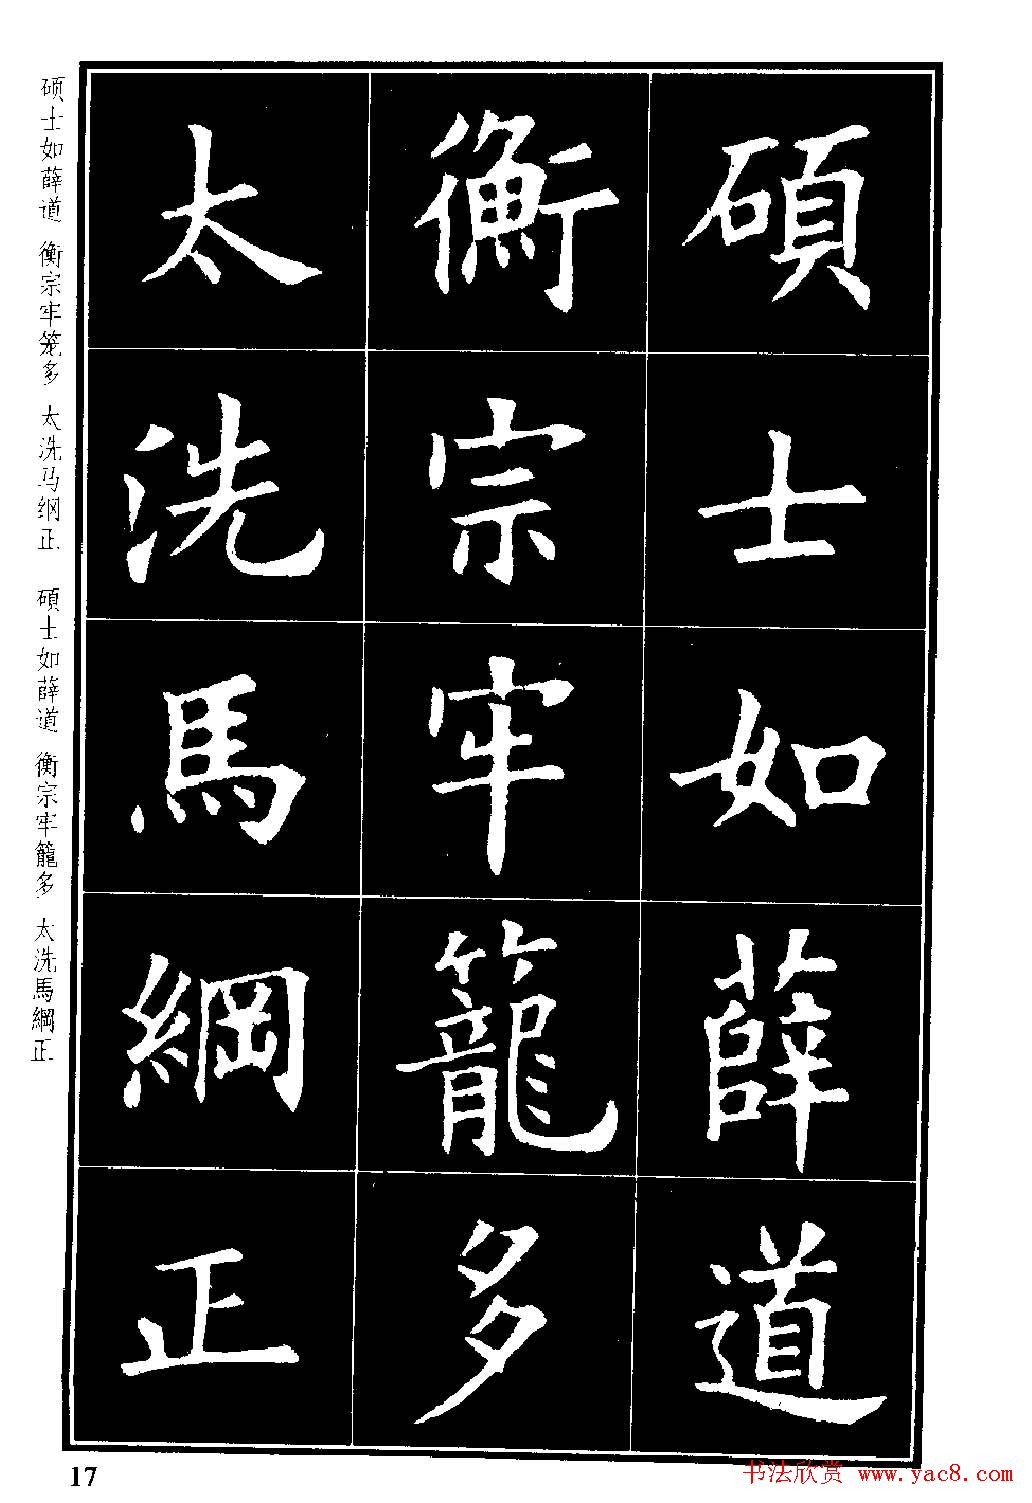 碩士如薛道
衡宗牢籠多
太洗馬綱正
硕士如薛道 衡宗牢笼多 太洗马纲正 碩士如薛道 衡宗牢籠多 太洗馬綱正
17
书法欣赏 www.yac8.com